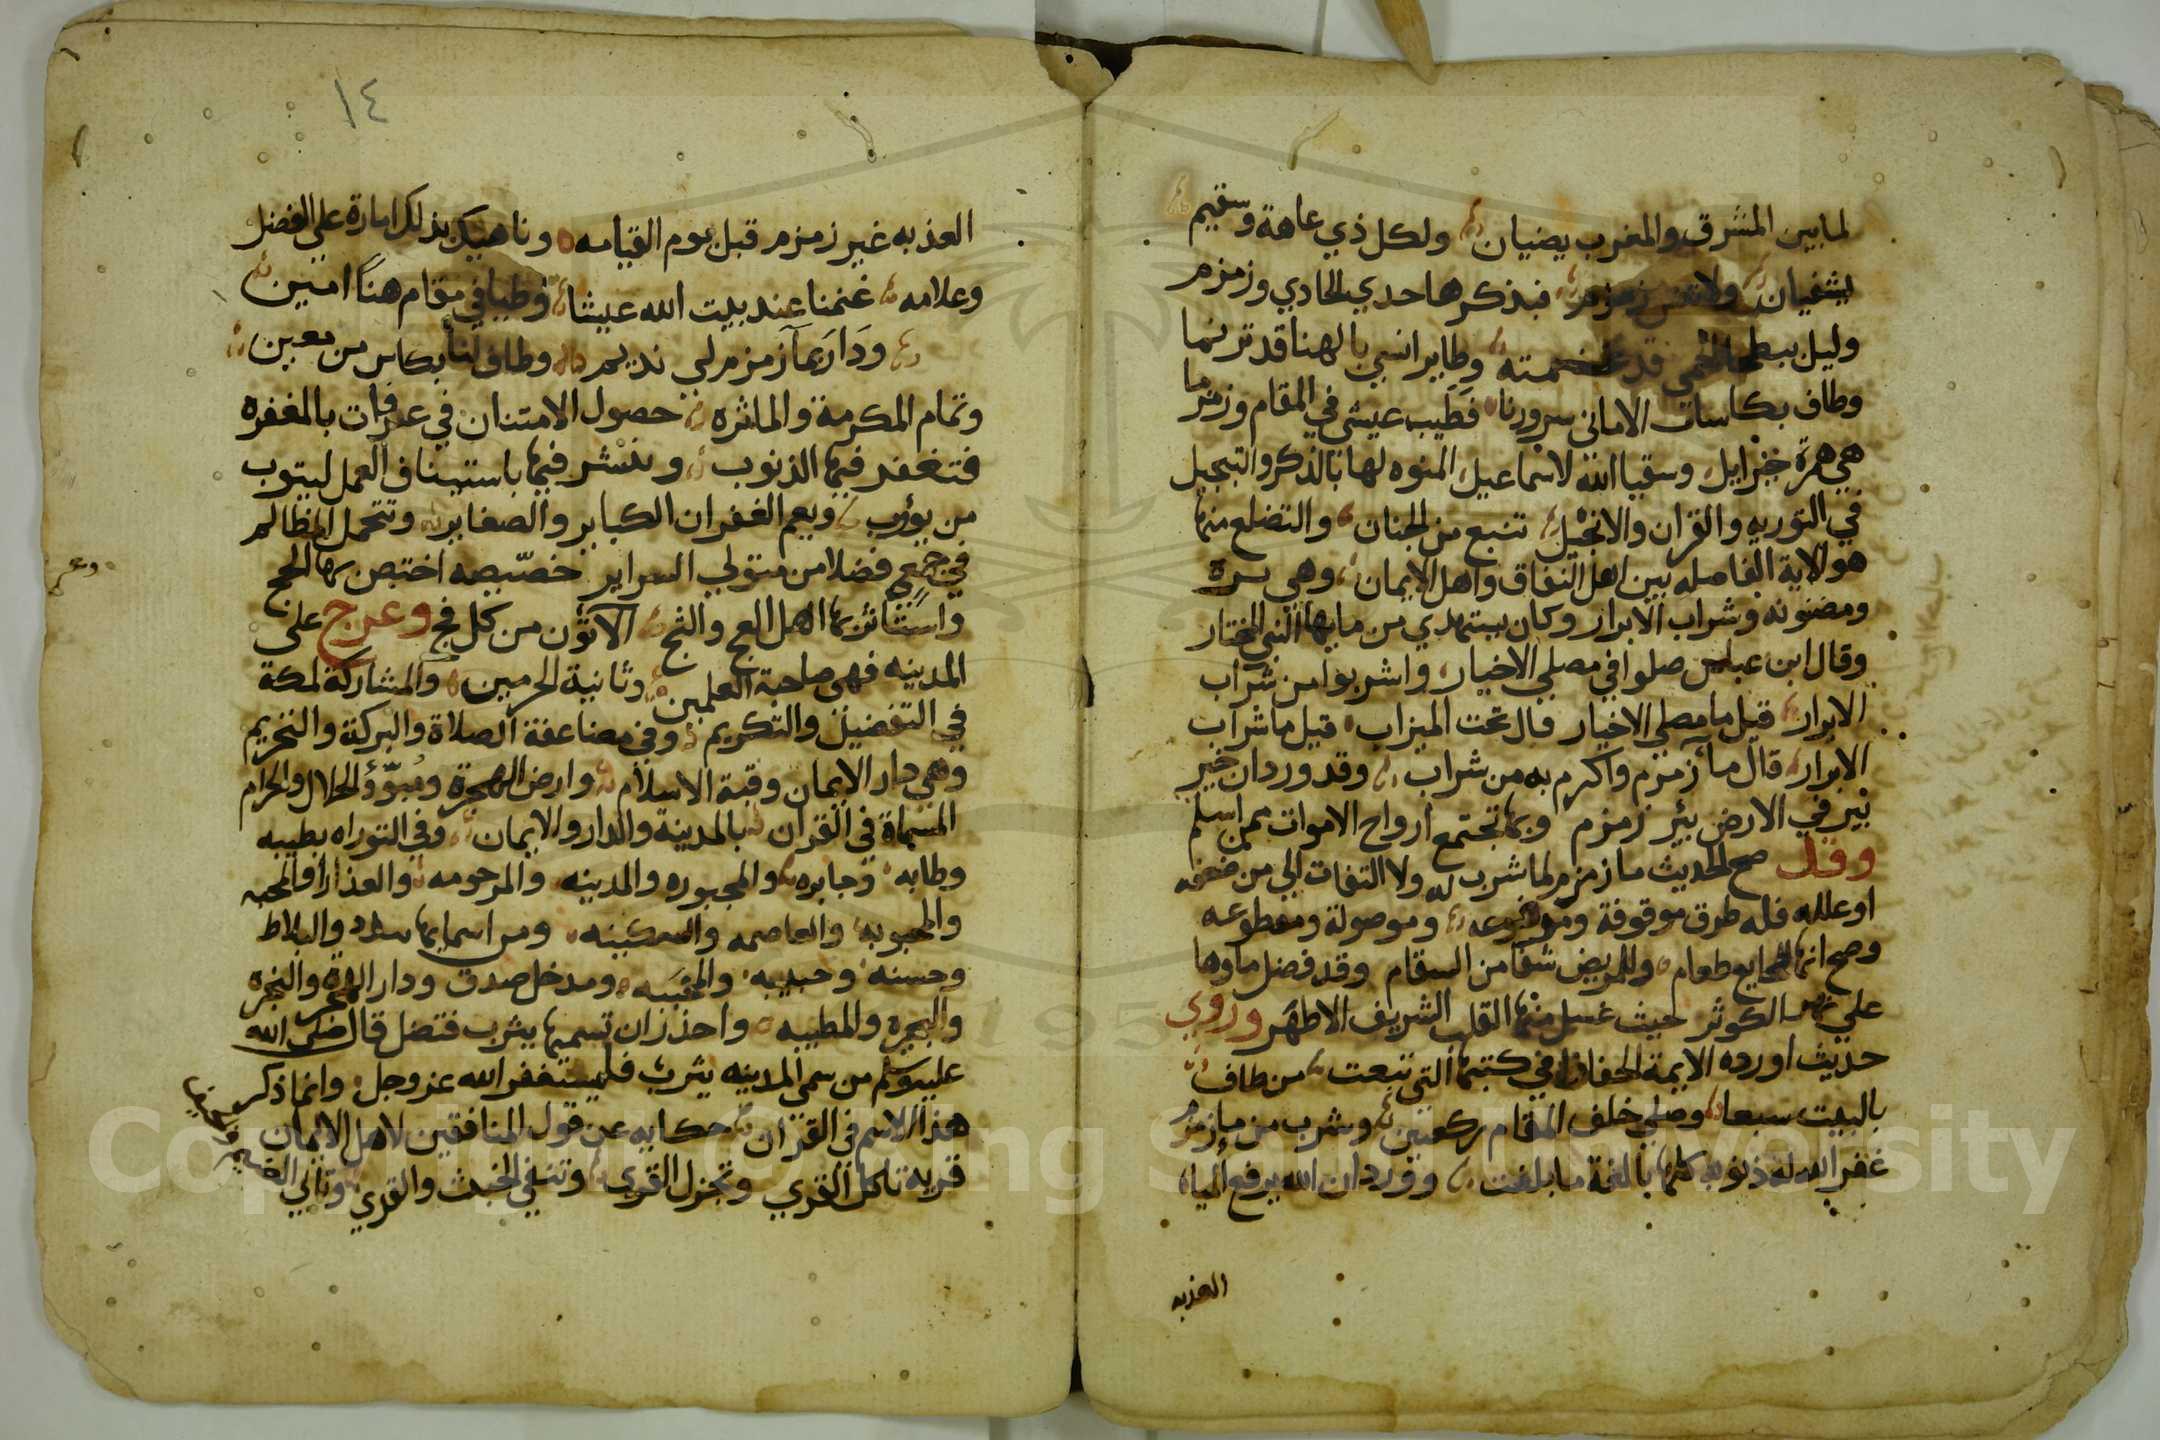 لمابين المشرق والمغرب يضيان ولكل ذي عاهة وسقيم
يشفيان ولاتنس زمزمر فبذكرها حدي الحادي وزمزم
وليل ببطحا قد ضمته وطاير انسي بالهنا قد ترنما
وطاف بكاسات الاماني سرورنا فطيب عيشي في المقام وزمزما
هي همزة جبرايل وسقيا الله لاسماعيل المنوه لها بالذكر والتبجيل
في التوريه والقران والانجيل تنبع من الجنان والتضلع منها
هو الاية الفاصله بين اهل النفاق واهل الايمان وهي برة
ومضنونه وشراب الابرار وكان يستهدي من مايها النبي المختار
وقال ابن عباس صلوا في مصلي الاخيار واشربوا من شراب
الابرار قيل ما مصلي الاخيار قال تحت الميزاب قيل ما شراب
الابرار قال مآ زمزم واكرم به من شراب وقد ورد ان خير
بير في الارض بئر زمزم وبها تجتمع ارواح الاموات ممن اسلم
وقد صح الحديث ما زمزم لما شرب له ولا التفات الي من ضعفه
او علله فله طرق موقوفة ومرفوعه وموصولة ومقطوعه
وصح انها للجايع طعام وللمريض شفا من السقام وقد فضل ماوها
علي نهر الكوثر حيث غسل منها القلب الشريف الاطهر وروي
حديث اورده الايمة الحفاظ في كتبها التي تنبعت من طاف
بالبيت سبعا وصلي خلف المقام ركعتين وشرب من ما زمزم
غفر الله له ذنوبه كلها بالغة ما بلغت وورد ان الله يرفع المياه
العذبه
١٤
العذبه غير زمزم قبل يوم القيامه وناهيك بذلك امارة علي الفضل
وعلامه غنمنا عند بيت الله عيشا وطبا في مقام هنا امين
ودار بمآ زمزم لي نديم وطاف لنا بكاس من معين
وتمام المكرمة والماثره حصول الامتنان في عرفات بالمغفره
فتغفر فيها الذنوب ونشر فيها باستيناف العمل ليتوب
من يؤوب ويعم الغفران الكباير والصغاير وتتحمل المظالم
في جمع فضلا من متولي السراير خصيصه اختص بها الحج
واستاثر بها اهل العج والثج الآتون من كل فج وعرج على
المدينه فهي صاحبة العلمين وثانية الحرمين والمشاركة لمكة
في التفضيل والتكريم وفي مضاعفة الصلاة والبركة والتحريم
وهي دار الايمان وقبة الاسلام وارض الهجرة ومبوّؤ الحلال والحرام
المسماة في القران بالمدينة والدار والايمان وفي التوراه بطيبه
وطابه وجابره والمجبوره والمدينه والمرحومه والعذارا والمحبه
والمحبوبه والعاصمه والمسكينه ومن اسمايها والبلاط
وحسنه وحبيبه والمحببه ومدخل صدق ودار الهجرة والنجره
والبحيره والمطيبه واحذر ان تسميها يثرب فتضل قال صلي الله
عليه وسلم من سمي المدينه يثرب فليستغفر الله عز وجل وانما ذكر
هذا الاسم في القران حكايه عن قول المنافقين لاهل الايمان
قرية تاكل القري وتجزل القري وتنفي الخبث والقري وتابي